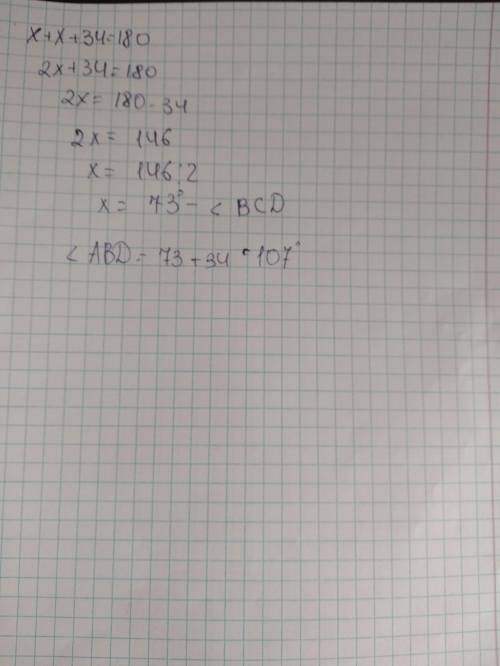 x+x+34=180
2x+34=180
2x= 180-34
2x= 146
x= 146:2
x= 73° - ∠ BCD
∠ ABD = 73 + 34 = 107°